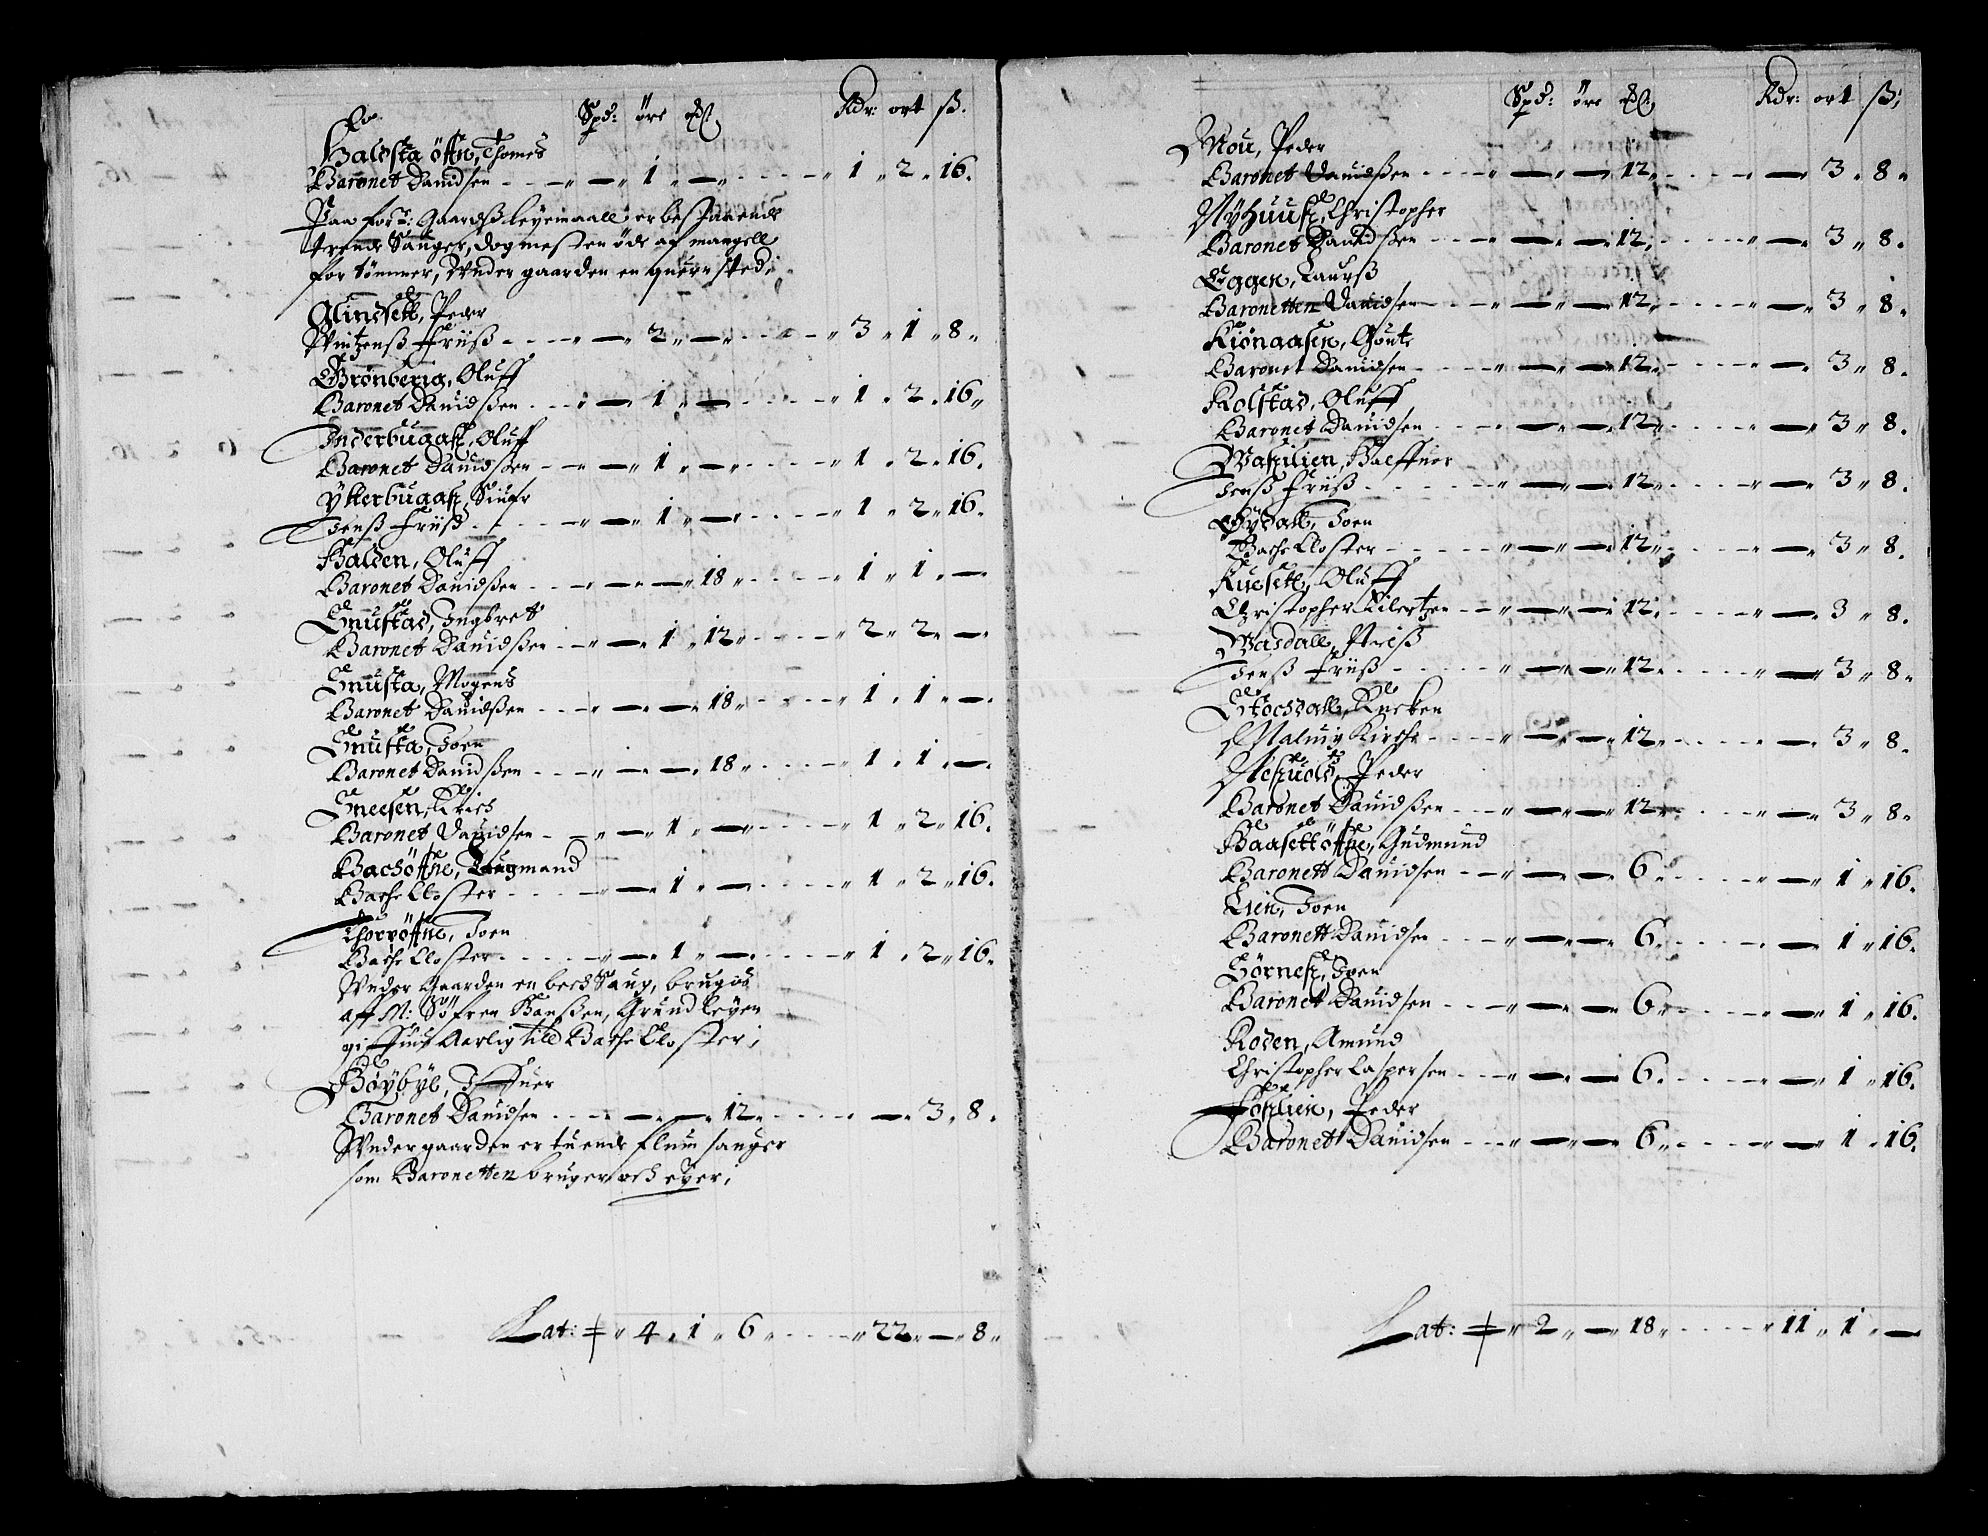 Spd: öre Rdr: ort ß.
Haldsta öffre, Thomes
Baronet Dauidsen - - 1 - 1 2 16.
Paa forn: Gaardß leyemaall er bestaaende
trende Sauger, dog mesten öde af mangell
for tömmer, Vnder gaarden en quern sted;
Glindsett, Peder
Vintzenß Friiß - - 2 - 3 1 8
Grönberig, Oluff
Baronet Dauidßen - - 1 - 1 2 16
Inderbugaß, Oluff
Baronet Dauidsen - - 1 - 1 2 16.
Ytterbugaß, Siuer
Jenß Friiß - - 1 - 1 2 16.
Halden, Oluff
Baronet Dauidßen - - - 18 1 1 -
Snustad, Ingbret
Baronet Dauidßen - - 1 12 2 2 -
Snusta, Mogens
Baronet Dauidßen - - - 18 1 1 -
Snusta, Joen
Baronet Dauidßen - - - 18 1 1 -
Sneesen, Erich
Baronet Dauidsen - - 1 - 1 2 16.
Bachöffne, Laugmand
Bache Closter - - 1 - 1 2 16.
Thoröffne, Joen
Bache Closter - - 1 - 1 2 16.
Vnder Gaarden en bech Saug, brugis
aff M: Söfren Hanßen, Grundleyen
giffuis Aarlig till Bache Closter;
Höybye, Iffuer
Baronet Dauidsen - - - 12 - 3 8.
Vnder gaarden er tuende flum sauger
som Baronetten bruger och eyer;
Lat: 4 1 6 22 - 8
Spd: öre Rdr: ort ß;
Mou, Peder
Baronet Dauidßen - - - 12 - 3 8
Nyhuuß, Christopher
Baronet Dauidßen - - - 12 - 3 8.
Eggen, Laurß
Baronetten Dauidsen - - 12 - 3 8.
Kiönaasen, Goute
Baronet Dauidsen - - - 12 - 3 8.
Rolstad, Oluff
Baronet Dauidsen - - - 12 - 3 8.
Waßlien, Halffuor
Jenß Friiß - - - 12 - 3 8.
Gydall, Joen
Bache Closter - - - 12 - 3 8.
Kuesett, Oluff
Christopher Eilertzen - - 12 - 3 8.
Wasdall, Nielß
Jenß Friiß - - - 12 - 3 8.
Stocdall, Encken
Malmig Kirche - - - 12 - 3 8.
Neßuold, Peder
Baronet Dauidßen - - - 12 - 3 8.
Baasettöffne, Gudmund
Baronett Dauidsen - - - 6 - 1 16.
Lien, Joen
Baronett Dauidsen - - - 6 - 1 16.
Sörneß, Joen
Baronet Dauidsen - - - 6 - 1 16.
Roden, Amund
Christopher Caspersen - - 6 - 1 16.
Foßlien, Peder
Baronett Dauidsen - - - 6 - 1 16.
Lat: 2 - 18 11 1 -